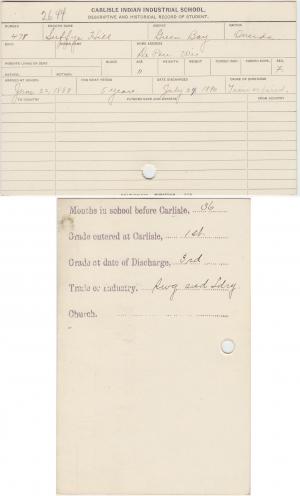 2644
CARLISLE INDIAN INDUSTRIAL SCHOOL.
DESCRIPTIVE AND HISTORICAL RECORD OF STUDENT.
NUMBER ENGLISH NAME AGENCY NATION
478 Hill Green Bay Oneida
BAND INDIAN NAME HOME ADDRESS
De Pere Wis
PARENTS LIVING OR DEAD BLOOD AGE HEIGHT WEIGHT FORCED INSP. FORCED EXPR. SEX
FATHER, MOTHER, 11
ARRIVED AT SCHOOL FOR WHAT PERIOD DATE DISCHARGED CAUSE OF DISCHARGE
June 22, 1885 5 years July 24, 1890 Time expired.
TO COUNTRY PATRONS NAME AND ADDRESS FROM COUNTRY
Months in school before Carlisle, 36
Grade entered at Carlisle, 1st
Grade at date of Discharge, 3rd
Trade or industry, Swg and Ldry
Church,